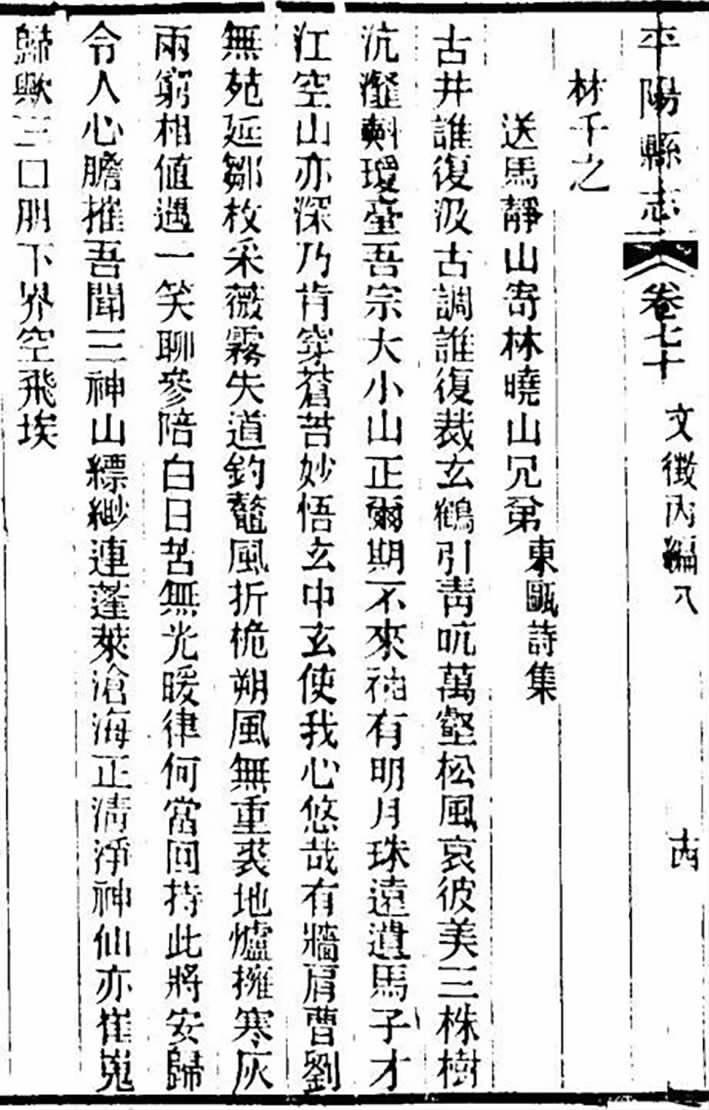 平陽縣志 卷七十 文徵內編八 十四
林千之
送馬靜山寄林曉山兄弟 東甌詩集
古井誰復汲古調誰復裁玄鶴引青吭萬壑松風哀彼美三株樹
沆瀣㪺瓊臺吾宗大小山正爾期不來袖有明月珠遠遺馬子才
江空山亦深乃肯穿蒼苔妙悟玄中玄使我心悠哉有牆肩曹劉
無苑延鄒枚采薇霧失道釣鼇風折桅朔風無重裘地爐擁寒灰
兩窮相值遇一笑聊參陪白日苦無光暖律何當回持此將安歸
令人心膽摧吾聞三神山縹緲連蓬萊滄海正清淨神仙亦崔嵬
歸歟三口朋下界空飛埃